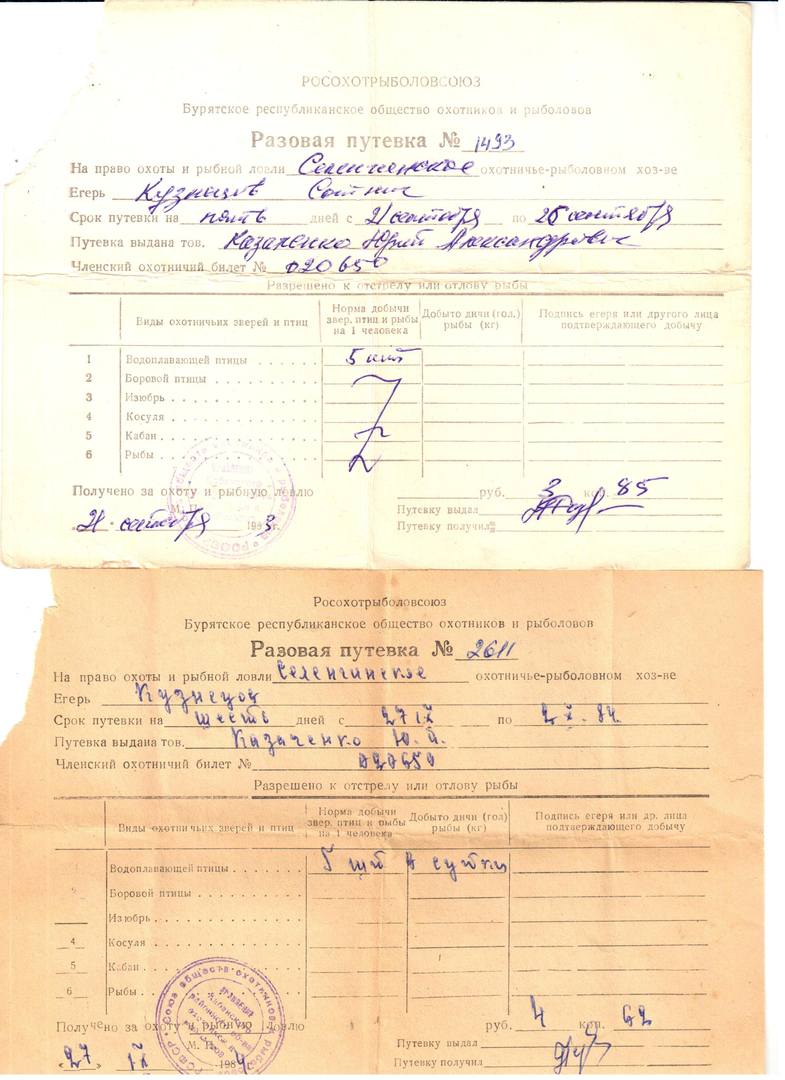 РОСОХОТРЫБОЛОВСОЮЗ
Бурятское республиканское общество охотников и рыболовов
Разовая путевка № 1493
На право охоты и рыбной ловли Селенгинское охотничье-рыболовном хоз-ве
Егерь Кузнецов
Срок путевки на пять дней с 21 сентября по 25 сентября
Путевка выдана тов. Казаченко Юрий Александрович
Членский охотничий билет № 020650
Разрешено к отстрелу или отлову рыбы
Виды охотничьих зверей и птиц Норма добычи звер. птиц и рыбы на 1 человека Добыто дичи (гол.) рыбы (кг) Подпись егеря или другого лица подтверждающего добычу
1 Водоплавающей птицы 5 шт
2 Боровой птицы
3 Изюбрь
4 Косуля
5 Кабан
6 Рыбы
Получено за охоту и рыбную ловлю руб. 3 коп. 85
М. П. Путевку выдал
21 сентября 1983г. Путевку получил
Росохотрыболовсоюз
Бурятское республиканское общество охотников и рыболовов
Разовая путевка № 2611
На право охоты и рыбной ловли Селенгинское охотничье-рыболовном хоз-ве
Егерь Кузнецов
Срок путевки на шесть дней с 27 IX по 2 X. 84.
Путевка выдана тов. Казаченко Ю. А.
Членский охотничий билет № 020650
Разрешено к отстрелу или отлову рыбы
Виды охотничьих зверей и птиц Норма добычи звер. птиц и рыбы на 1 человека Добыто дичи (гол) рыбы (кг) Подпись егеря или др. лица подтверждающего добычу
Водоплавающей птицы 5 шт в сутки
2 Боровой птицы
Изюбрь
4 Косуля
5 Кабан
6 Рыбы
Получено за охоту и рыбную ловлю руб. 4 коп. 62
М. П. Путевку выдал
«27» IX 1984 Путевку получил